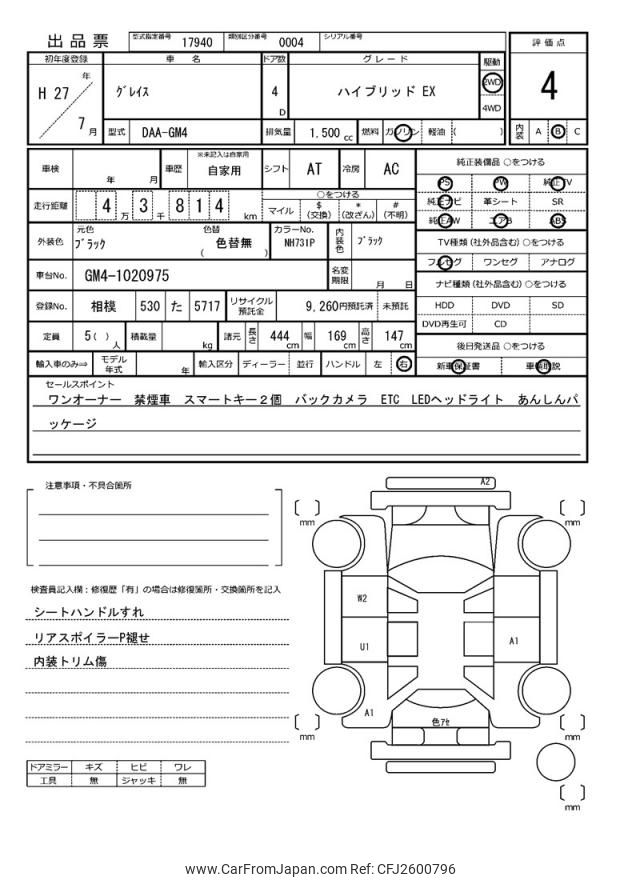 出品票 型式指定番号 17940 類別区分番号 0004 シリアル番号
評価点
4
内装 A B C
初年度登録 車名 ドア数 グレード 駆動
H 27 年 7 月
グレイス 4 D ハイブリッド EX 2WD
4WD
型式 DAA-GM4 排気量 1.500 cc 燃料 ガソリン 軽油 ( )
車検 年 月 車歴 ※未記入は自家用 自家用 シフト AT 冷房 AC
走行距離 4 万 3 千 8 1 4 km
○をつける
マイル $(交換) *(改ざん) #(不明)
外装色 元色 ブラック 色替 ( 色替無 ) カラーNo. NH731P 内装色 ブラック
車台No. GM4-1020975 名変期限 月 日
登録No. 相模 530 た 5717 リサイクル預託金 9,260円預託済 未預託
定員 5( ) 人 積載量 kg 諸元 長さ 444 cm 幅 169 cm 高さ 147 cm
輸入車のみ⇒ モデル年式 年 輸入区分 ディーラー 並行 ハンドル 左 右
純正装備品 ○をつける
PS PW 純正TV
純正ナビ 革シート SR
純正AW エアB ABS
TV種類 (社外品含む) ○をつける
フルセグ ワンセグ アナログ
ナビ種類 (社外品含む) ○をつける
HDD DVD SD
DVD再生可 CD
後日発送品 ○をつける
新車保証書 車輌取説
セールスポイント
ワンオーナー 禁煙車 スマートキー２個 バックカメラ ETC LEDヘッドライト あんしんパ
ッケージ
注意事項・不具合箇所
検査員記入欄：修復歴「有」の場合は修復箇所・交換箇所を記入
シートハンドルすれ
リアスポイラーP褪せ
内装トリム傷
ドアミラー キズ ヒビ ワレ
工具 無 ジャッキ 無
A2
mm
mm
W2
U1
A1
A1
色アセ
mm
mm
mm
www.CarFromJapan.com Ref: CFJ2600796